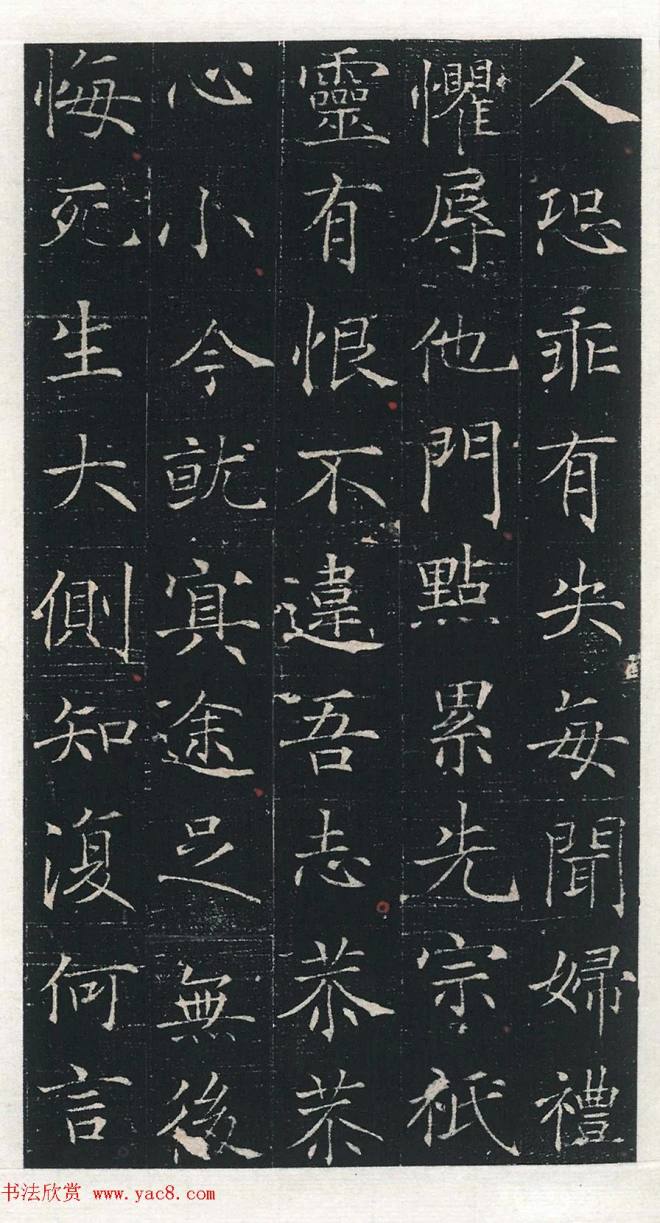 人恐乖有失每聞婦禮
懼辱他門點累先宗祇
靈有恨不違吾志恭恭
心小今就冥途足無後
悔死生大側知復何言
书法欣赏 www.yac8.com